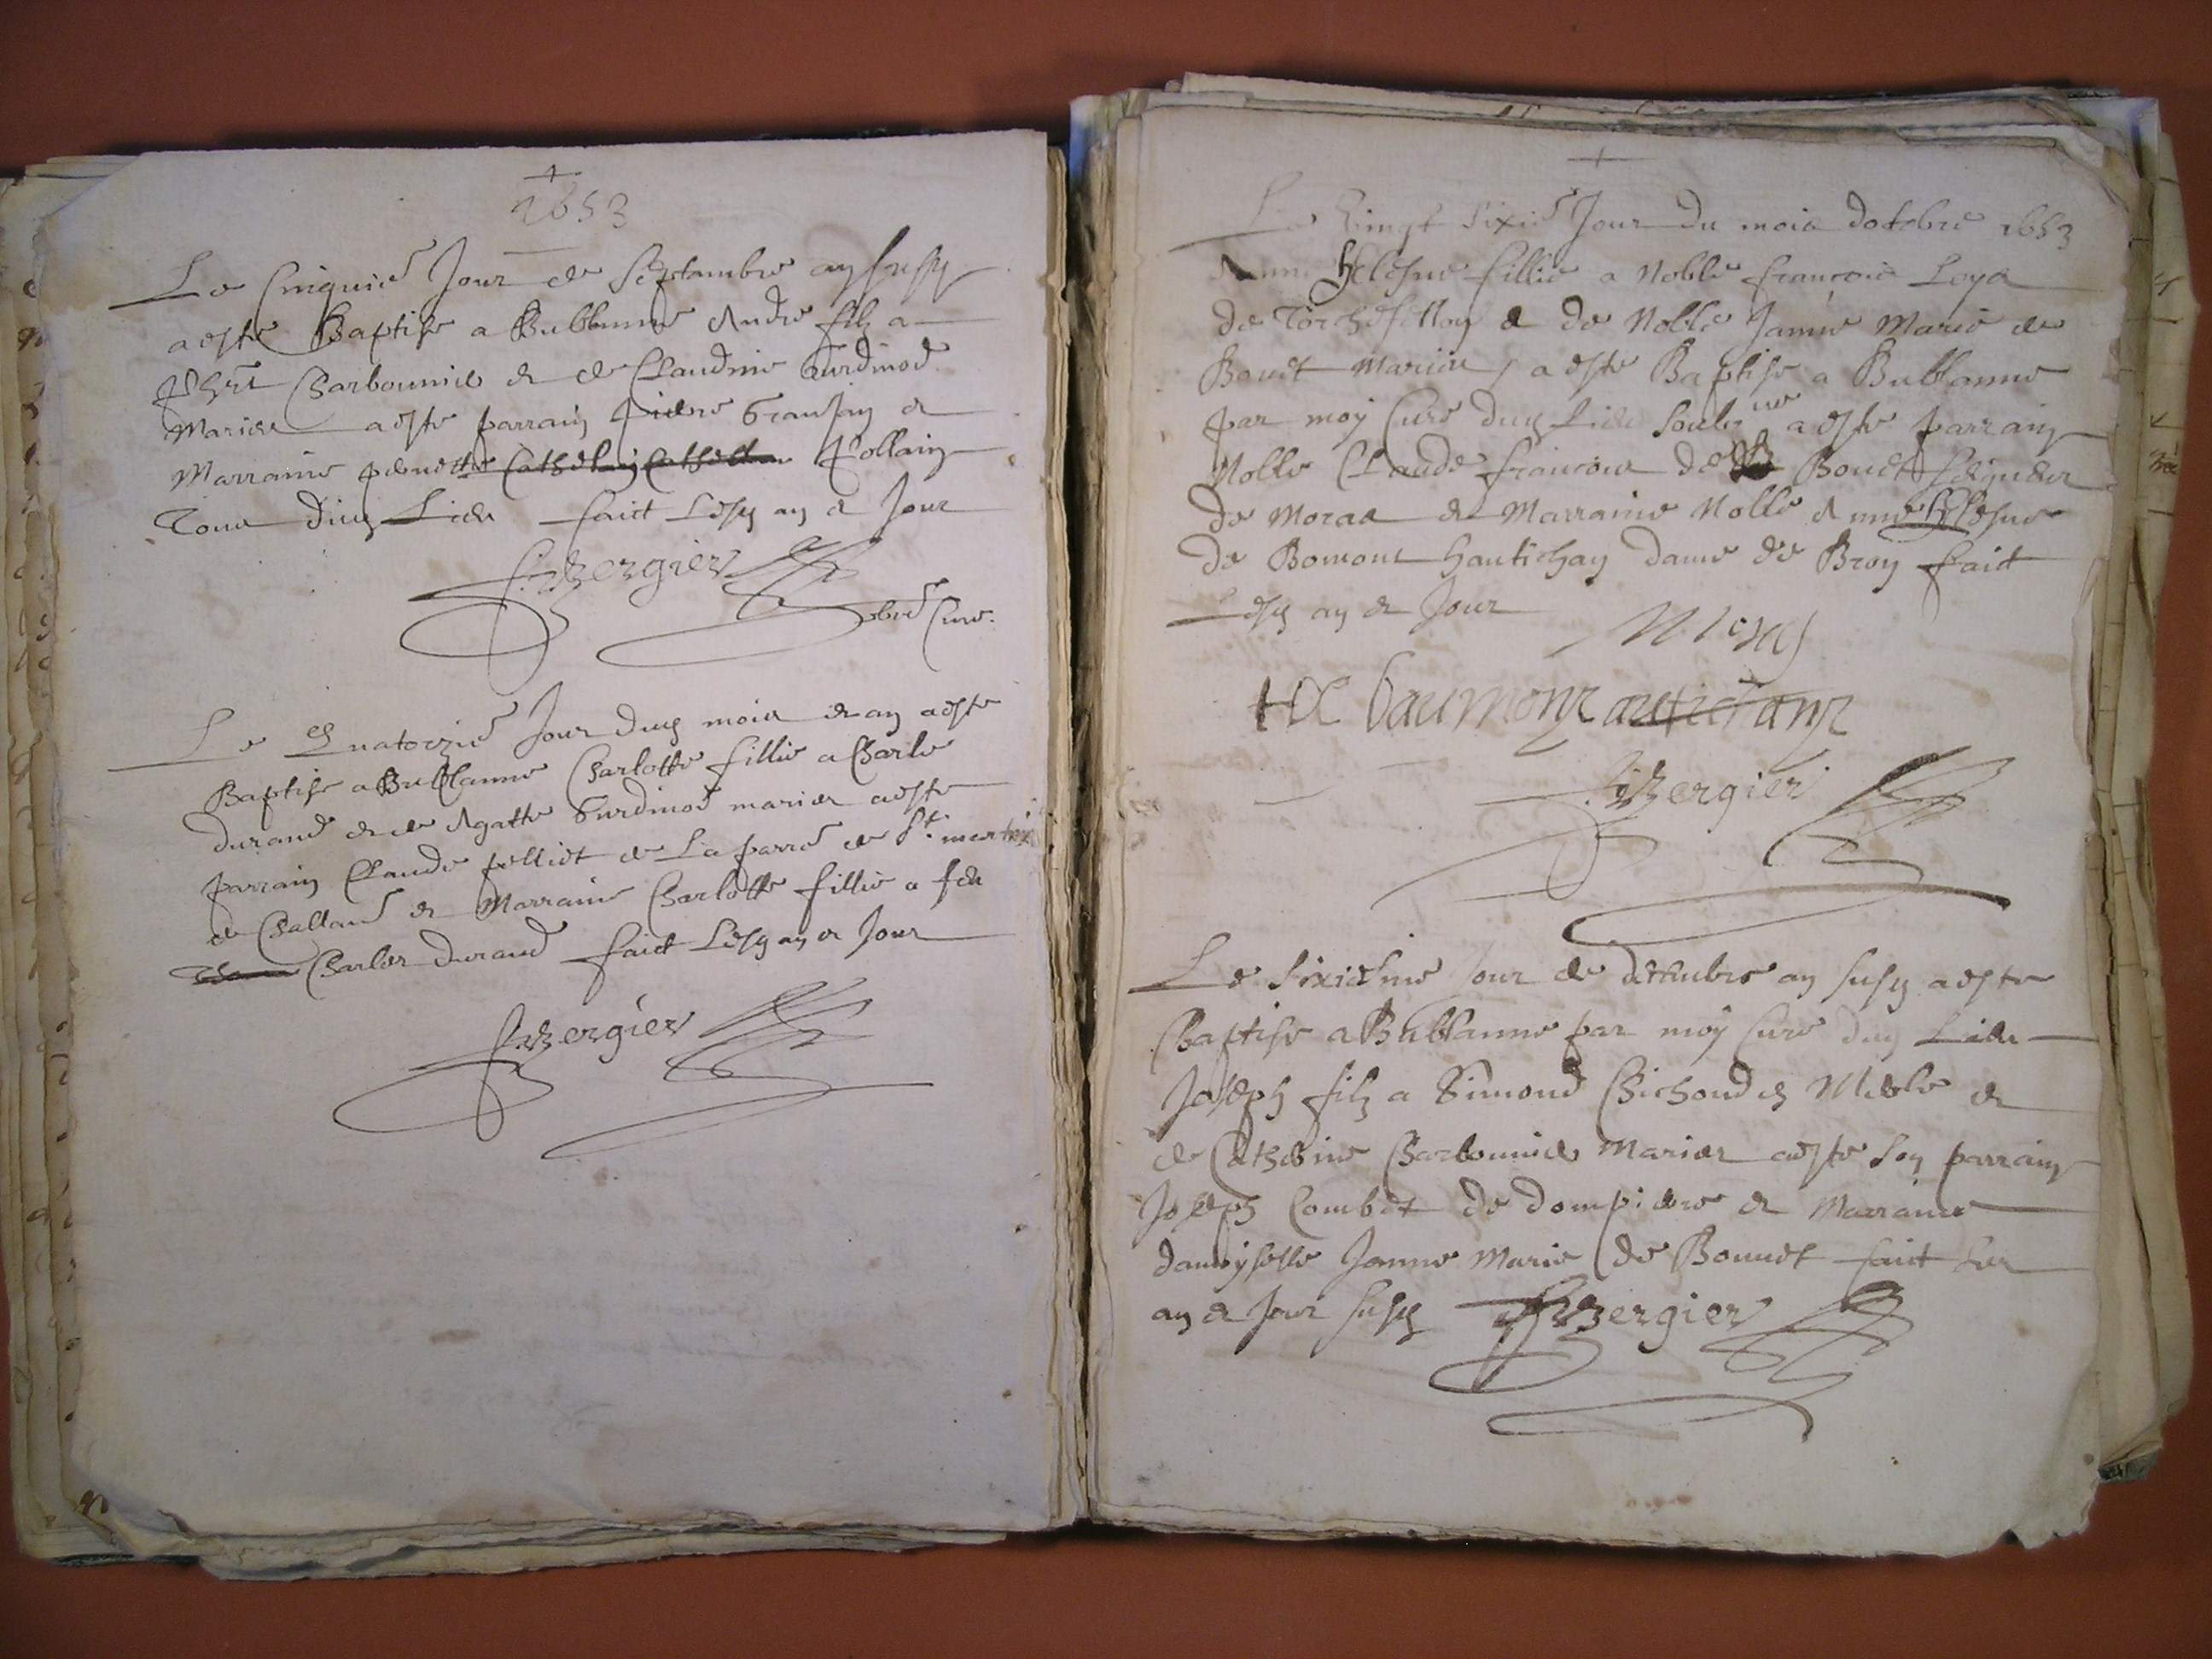 1653
Le Cinquie Jour de Septambre an susd
a este Baptise a Bublanne Andre filz a
Charbounie & de Claudine Gurdinod
Maries a este parrain piere Granjan &
Marraine pernette Collain
Tous dud Lieu faict Lesd an & Jour
Bergier
Cure
Le Quatorzie Jour dud mois & an a este
Baptise a Bublanne Charlotte fillie a Charle
durand & de Agatte Gurdinod maries a este
parrain Claude pelliet de La parre de St martin
de Challand & Marraine Charlotte fillie a feu
Charles durand faict Lesd an & Jour
Bergier
Le Vingt Sixie Jour du mois doctobre 1653
Anne Helesne fillie a Noble francois Loys
de Torchefellon & de Noble Janne Marie de
Bouet Maries, a este Baptise a Bublanne
par moy Cure dud Lieu a este parrain
Noble Claude francois de Bouet Seigneur
de Moras & Marraine Noble Anne Helesne
de Bomont hautichan dame de Bron faict
Lesd an & Jour
baumont autichant
Bergier
Le Sixiesme Jour de decembre an susd a este
Baptise a Bublanne par moy Cure dud Lieu
Joseph filz a Simond Chichoud &
de Catherine Charbounie Maries a este son parrain
Joseph Combet de dompiere & Marraine
damoyselle Janne Marie de Bouuet faict Les
an & Jour susd Bergier